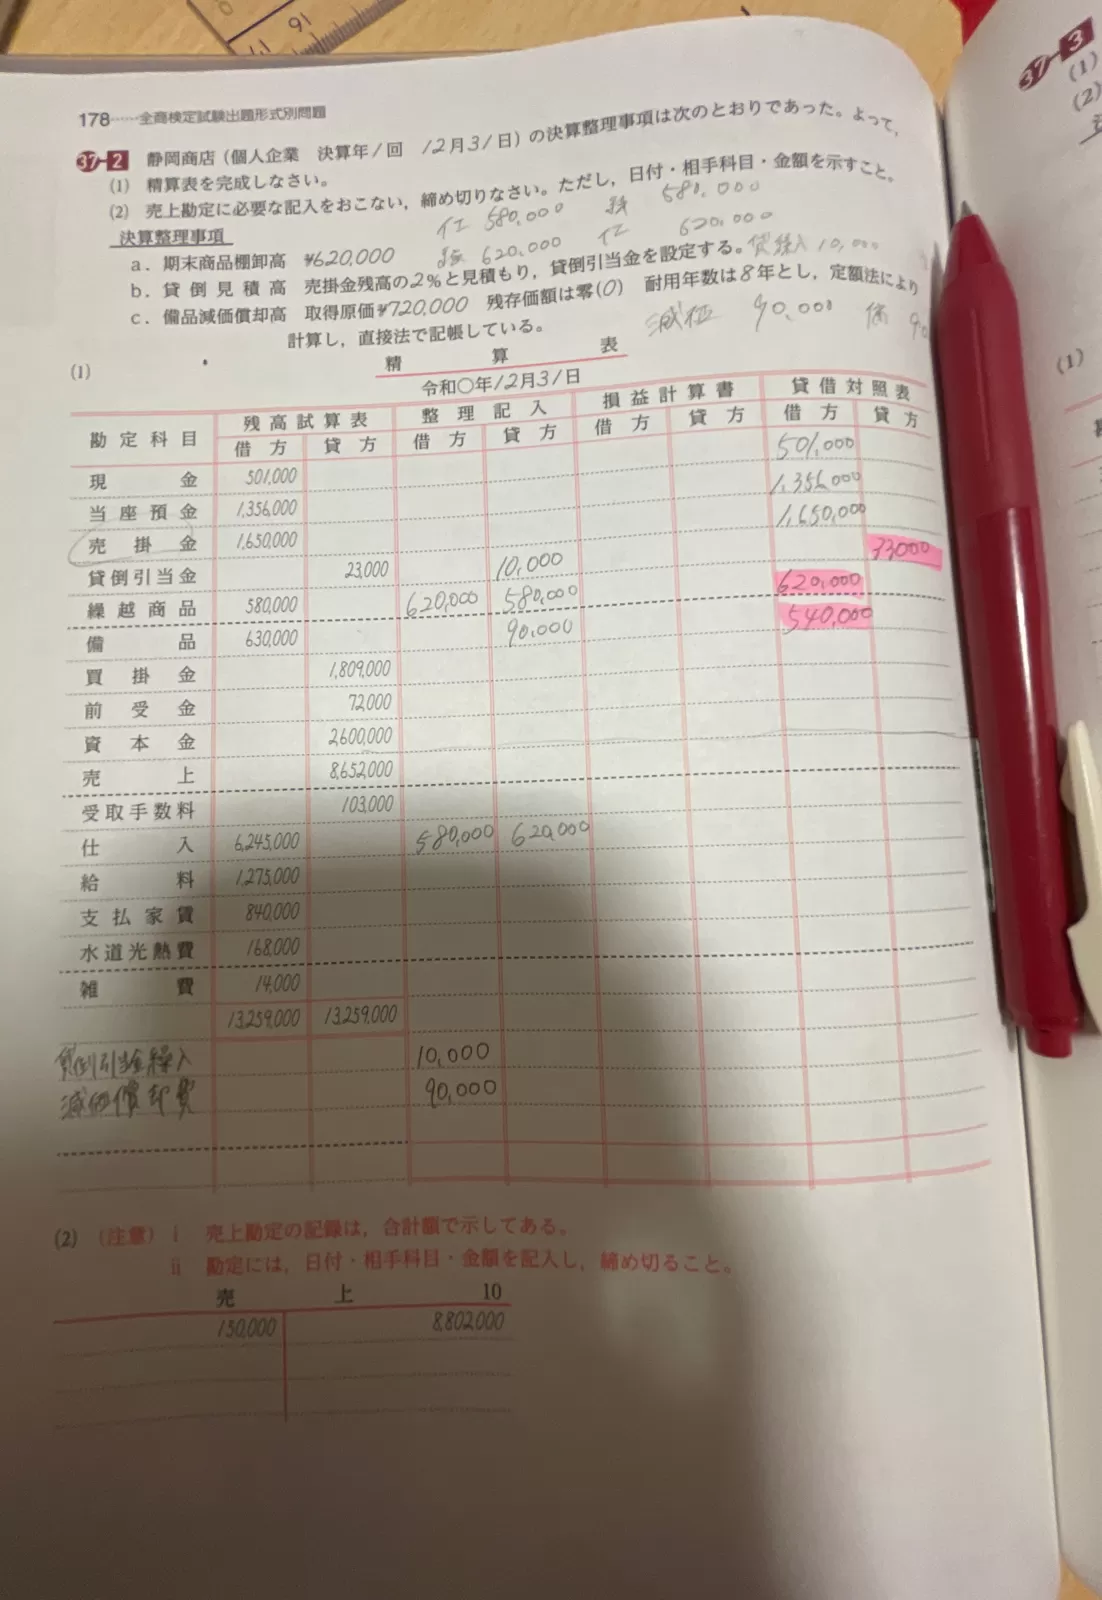 16
178……全商検定試験出題形式別問題
37-2 静岡商店(個人企業 決算年1回 12月31日)の決算整理事項は次のとおりであった。よって,
(1) 精算表を完成しなさい。
(2) 売上勘定に必要な記入をおこない, 締め切りなさい。ただし, 日付・相手科目・金額を示すこと。
仕 580,000 繰 580,000
決算整理事項
繰 620,000 仕 620,000
a.期末商品棚卸高 ¥620,000
b.貸倒見積高 売掛金残高の2%と見積もり, 貸倒引当金を設定する。貸繰入 10,000
c.備品減価償却高 取得原価¥720,000 残存価額は零(0) 耐用年数は8年とし, 定額法により
計算し, 直接法で記帳している。 減価 90,000 備 90
(1) 精算表
令和○年12月31日
勘定科目 残高試算表 整理記入 損益計算書 貸借対照表
借方 貸方 借方 貸方 借方 貸方 借方 貸方
現金 501,000 501,000
当座預金 1,356,000 1,356,000
売掛金 1,650,000 1,650,000
貸倒引当金 23,000 10,000 33000
繰越商品 580,000 620,000 580,000 620,000
備品 630,000 90,000 540,000
買掛金 1,809,000
前受金 72,000
資本金 2,600,000
売上 8,652,000
受取手数料 103,000
仕入 6,245,000 580,000 620,000
給料 1,275,000
支払家賃 840,000
水道光熱費 168,000
雑費 14,000
13,259,000 13,259,000
貸倒引当金繰入 10,000
減価償却費 90,000
(2) (注意) i 売上勘定の記録は, 合計額で示してある。
ii 勘定には, 日付・相手科目・金額を記入し, 締め切ること。
売上 10
150,000 8,802,000
37-3
(1)
(2)
(1)